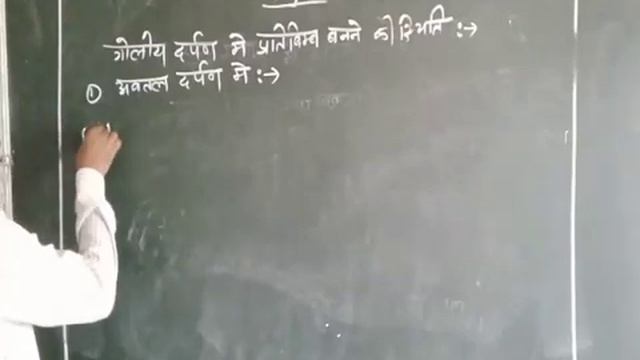 गोलीय दर्पण में प्रतिबिम्ब बनने की स्थिति :→
① अवतल दर्पण में :→